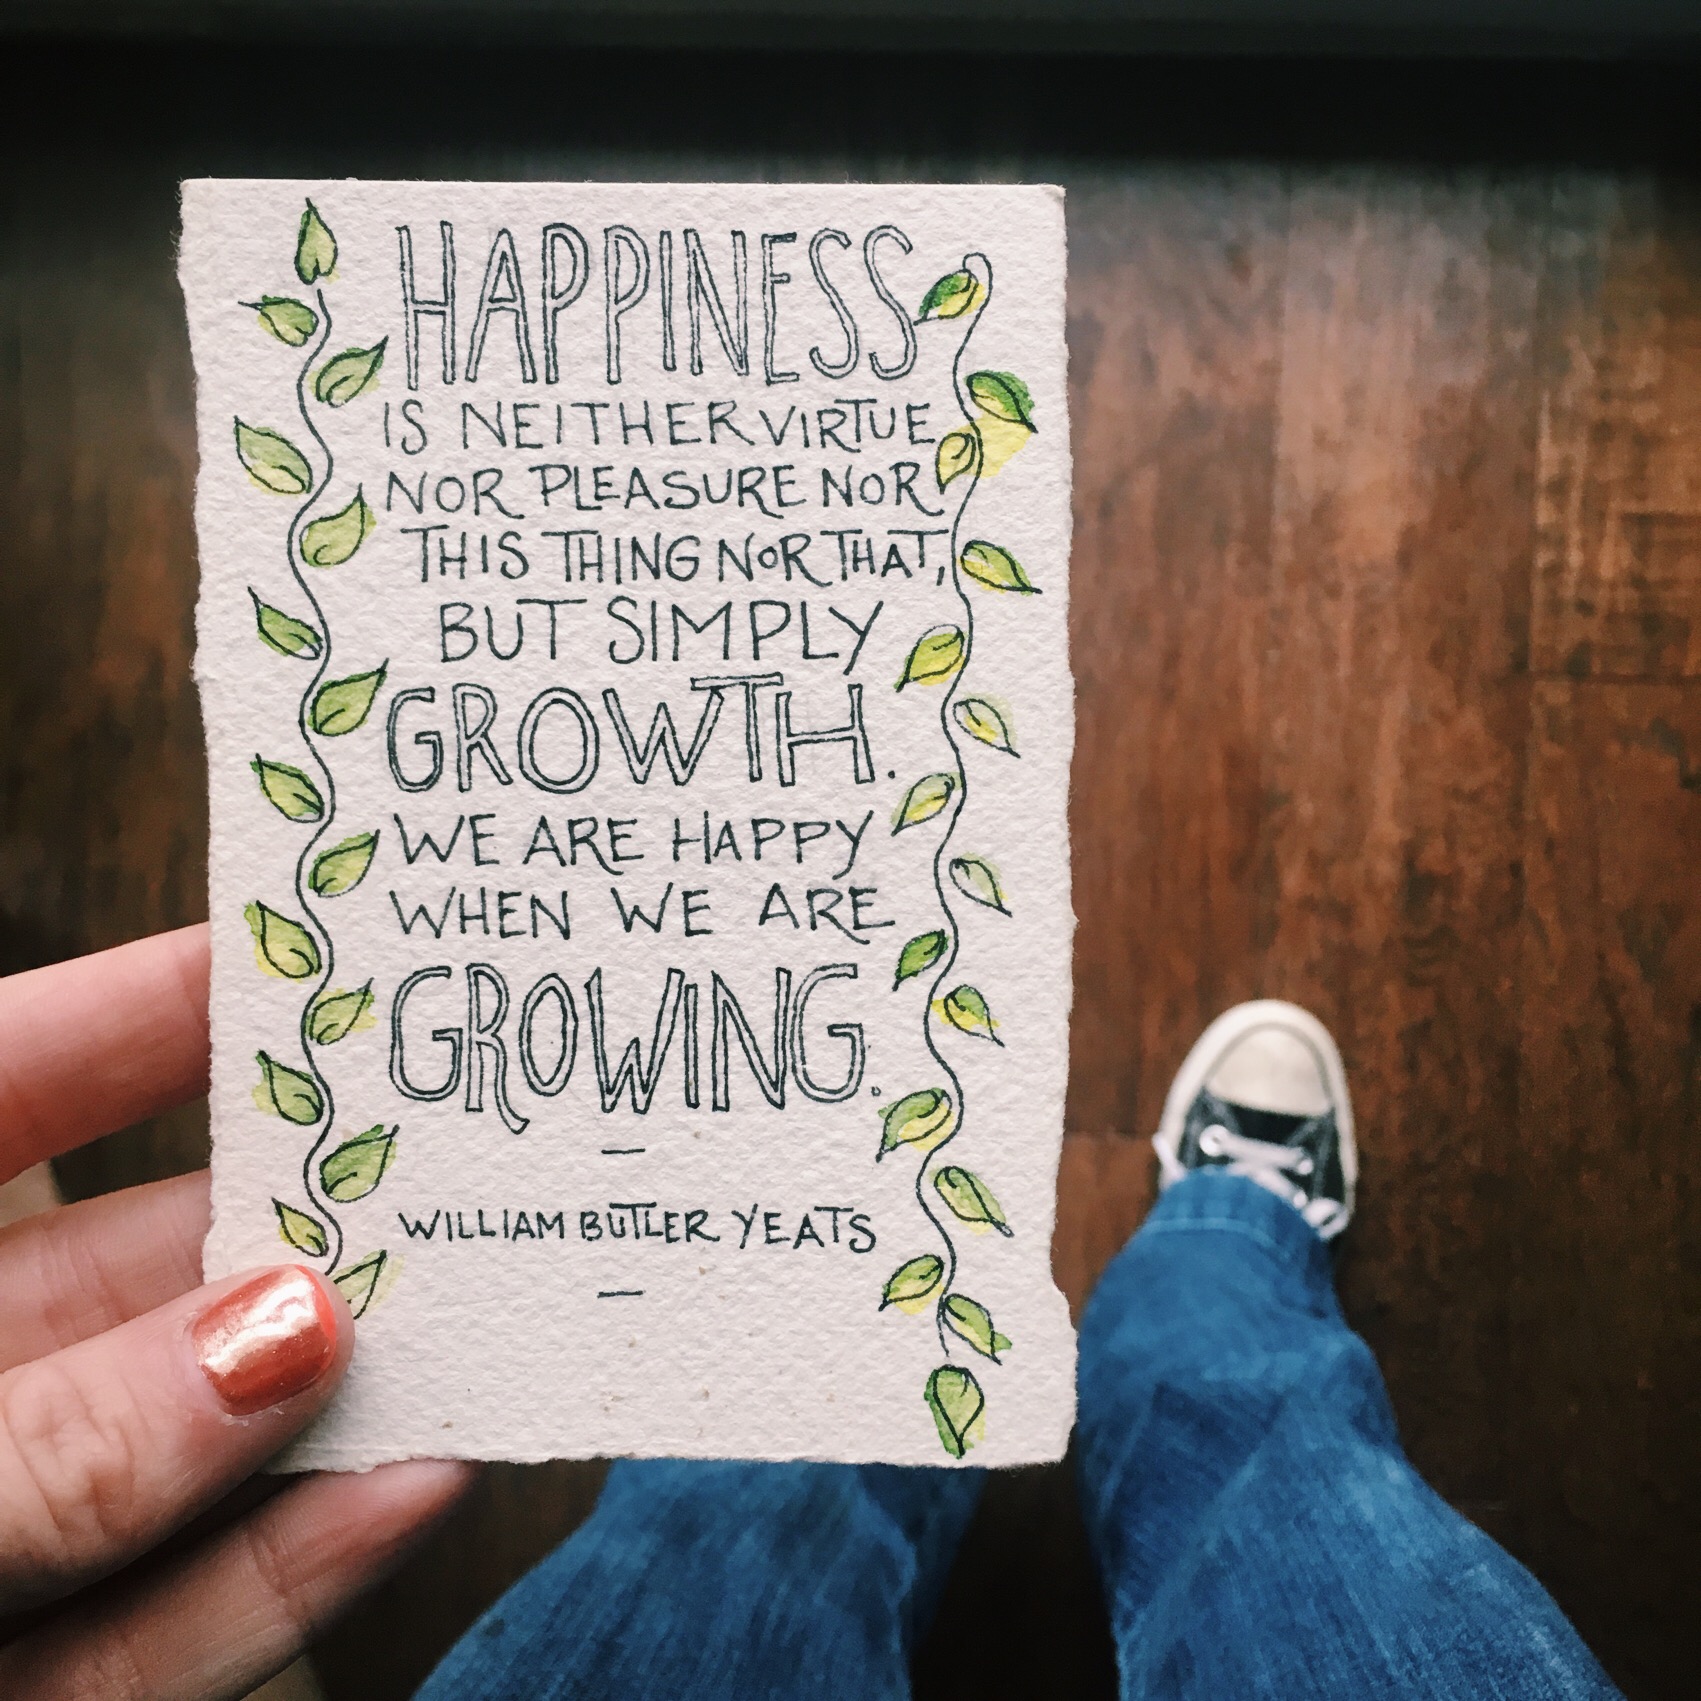 HAPPINESS
IS NEITHER VIRTUE
NOR PLEASURE NOR
THIS THING NOR THAT,
BUT SIMPLY
GROWTH.
WE ARE HAPPY
WHEN WE ARE
GROWING.
—
WILLIAM BUTLER YEATS
—